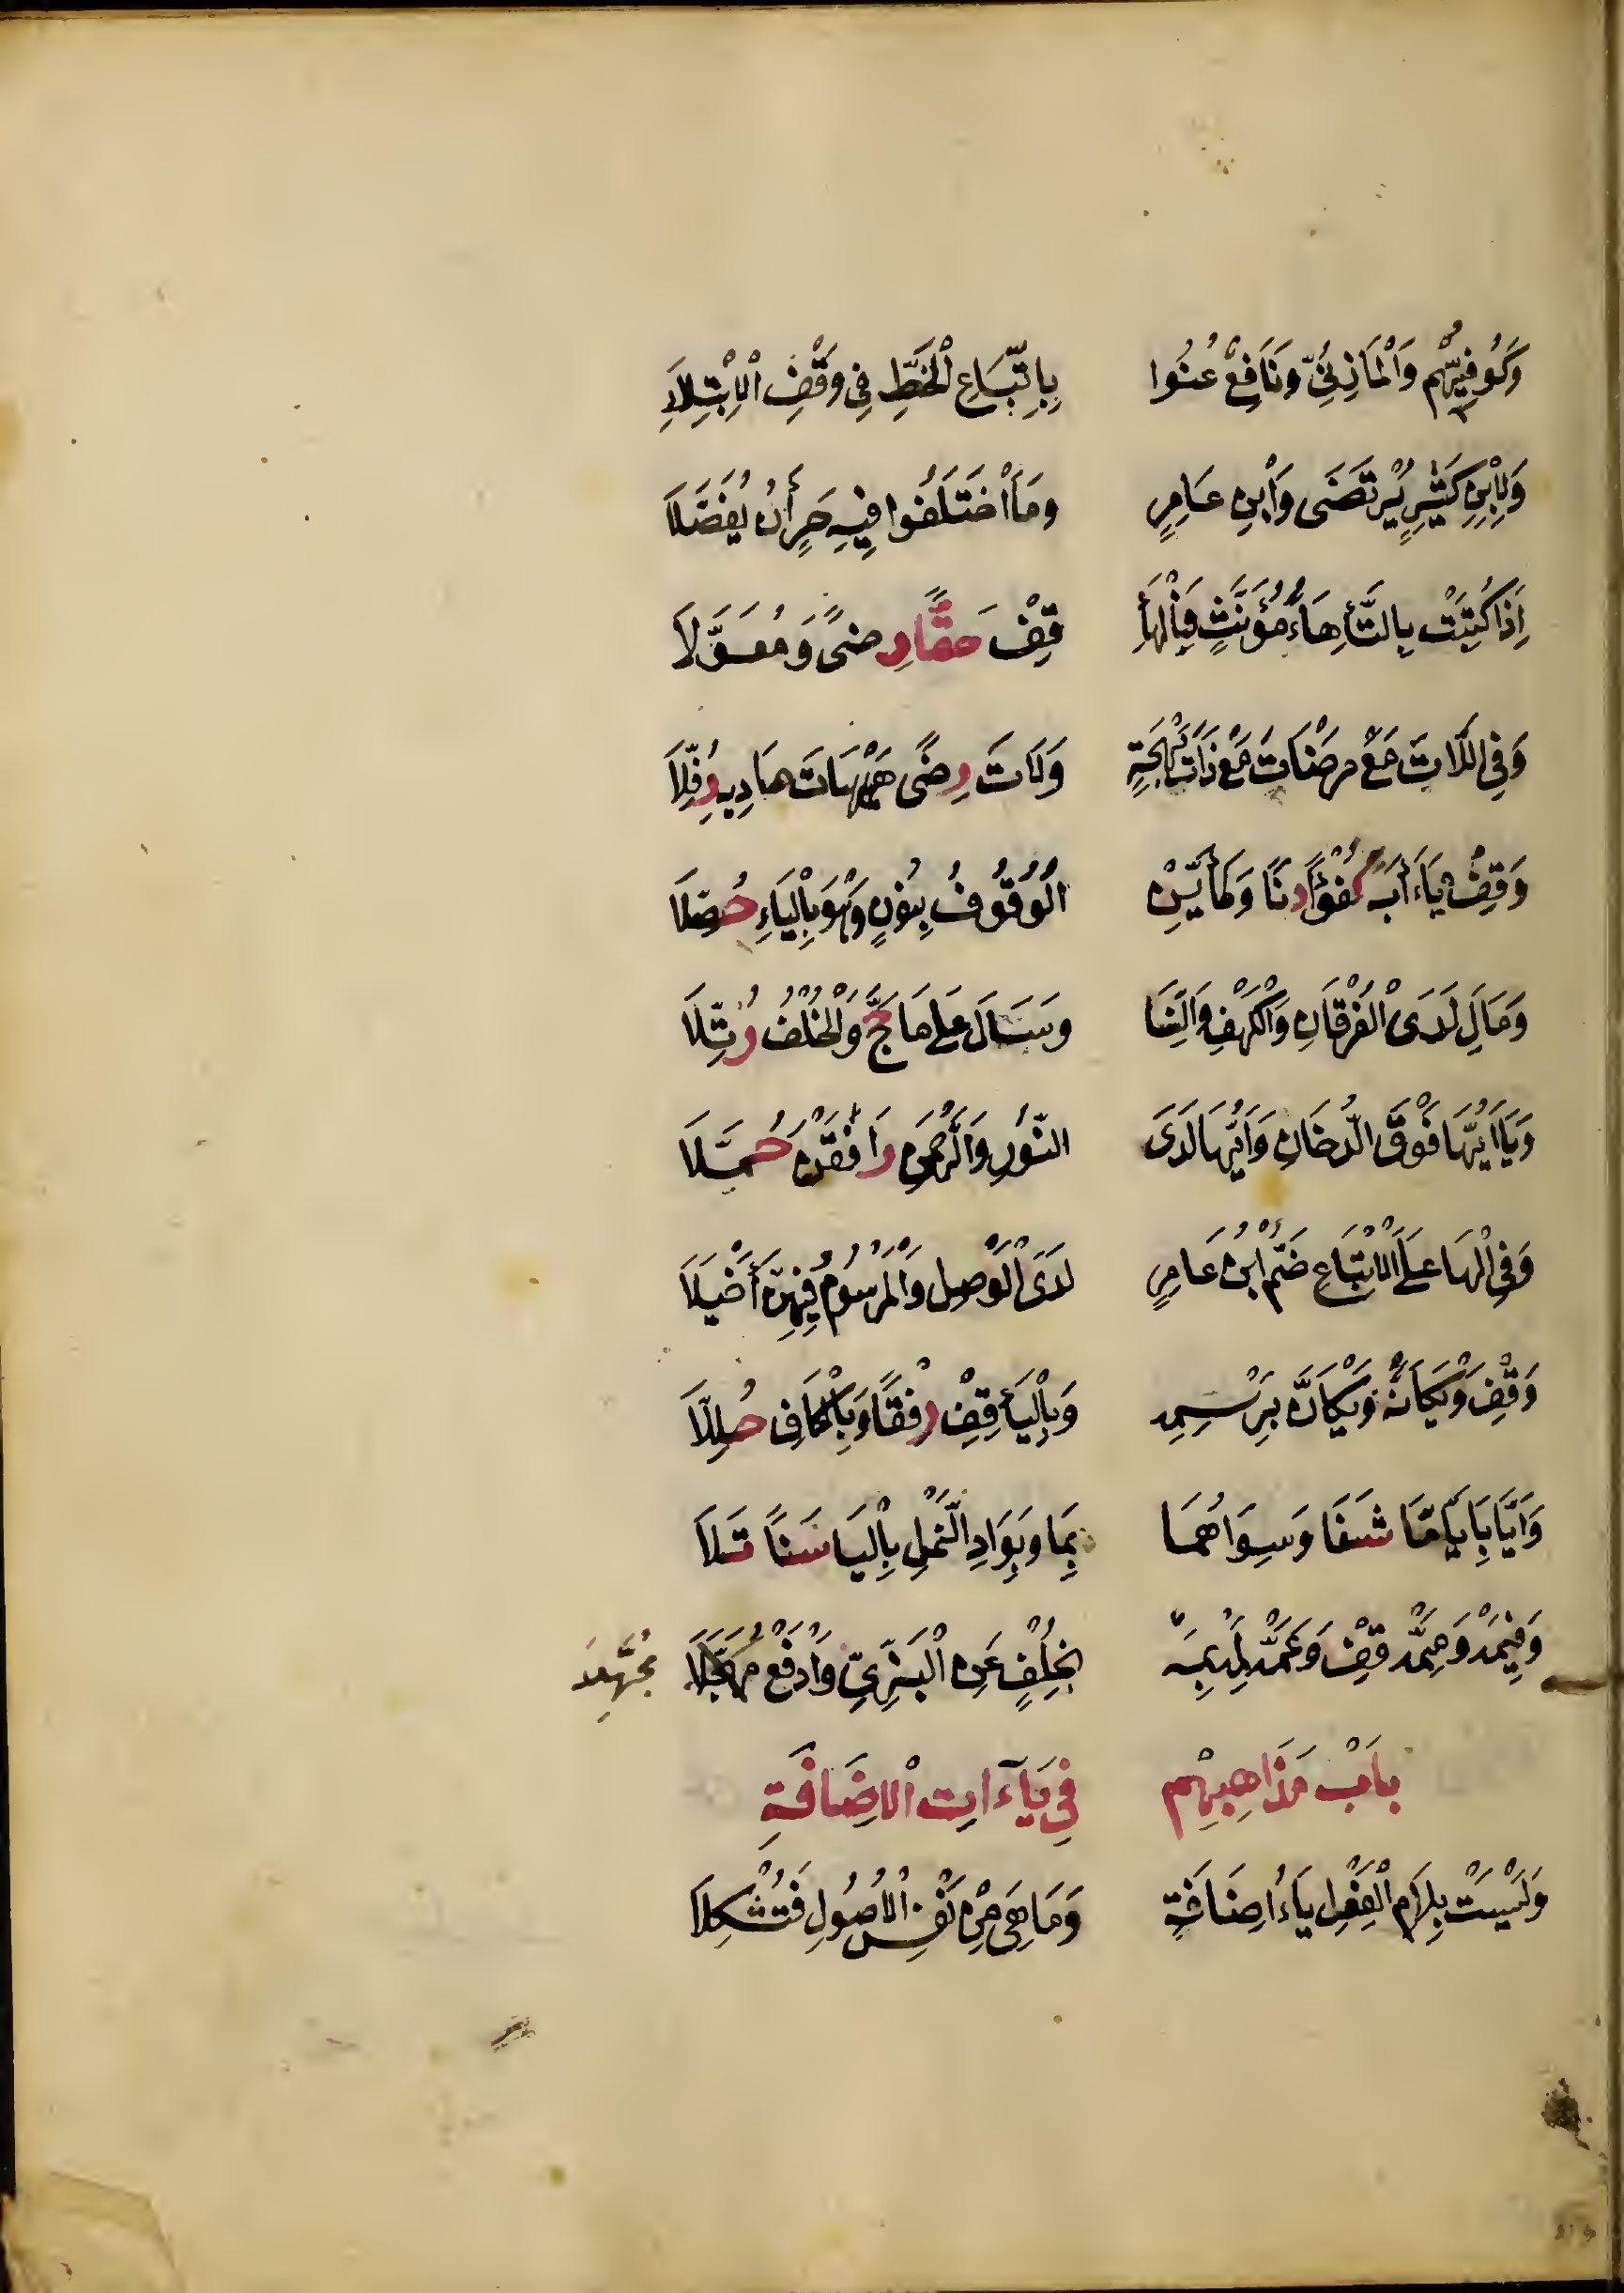 وَكُوفِيُّهُم وَالْمَازِنِيُّ وَنَافِعٌ عُنُوا بِاتِّبَاعِ الْخَطِّ فِي وَقْفِ الْاِبْتِلَا
وَلِابْنِ كَثِيرٍ يُرْتَضَى وَابْنِ عَامِرٍ وَمَا اخْتَلَفُوا فِيهِ حَرٍ أَنْ يُفَصَّلَا
إِذَا كُتِبَتْ بِالتَّاءِ هَاءُ مُؤَنَّثٍ فَبِالْهَاءِ قِفْ حَقًّا رِضىً وَمُعَوَّلَا
وَفِي اللَّاتَ مَعْ مَرْضَاتَ مَعْ ذَاتَ بَهْجَةٍ وَلَاتَ رِضًى هَيْهَاتَ هَادِيهِ رُفِّلَا
وَقِفْ يَاءَ أَبَهْ كُفْؤًا دَنَا وَكَأَيِّنْ الْوُقُوفُ بِنُونٍ وَهْوَ بِالْيَاءِ حُصِّلَا
وَمَالِ لَدَى الْفُرْقَانِ وَالْكَهْفِ وَالنِّسَا وَسَالَ عَلَى مَا حَجَّ وَالْخُلْفُ رُتِّلَا
وَيَا أَيُّهَا فَوْقَ الدُّخَانِ وَأَيُّهَا لَدَى النُّورِ وَالرَّحْمٰنِ رَافَقْنَ حُمَّلَا
وَفِي الْهَا عَلَى الْاِتْبَاعِ ضَمَّ ابْنُ عَامِرٍ لَدَى الْوَصْلِ وَالْمَرْسُومُ فِيهِنَّ أَخْيَلَا
وَقِفْ وَيْكَأَنَّهْ وَيْكَأَنَّ بِرَسْمِهِ وَبِالْيَاءِ قِفْ رِفْقًا وَبِالْكَافِ حُلِّلَا
وَأَيًّا بِأَيًّا مَّا شَفَا وَسِوَاهُمَا بِمَا وَبِوَادِ النَّمْلِ بِالْيَا سَنًا تَلَا
وَفِيمَهْ وَمِمَّهْ قِفْ وَعَمَّهْ لِمَهْ بِمَهْ بِخُلْفٍ عَنِ الْبَزِّيِّ وَادْفَعْ مُجَهِّلَا
مُجَهِّلَا
بَابُ مَذَاهِبِهِمْ فِي يَاءَاتِ الْاِضَافَةِ
وَلَيْسَتْ بِلَامِ الْفِعْلِ يَاءُ اِضَافَةٍ وَمَا هِيَ مِنْ نَفْسِ الْاُصُولِ فَتُشْكِلَا